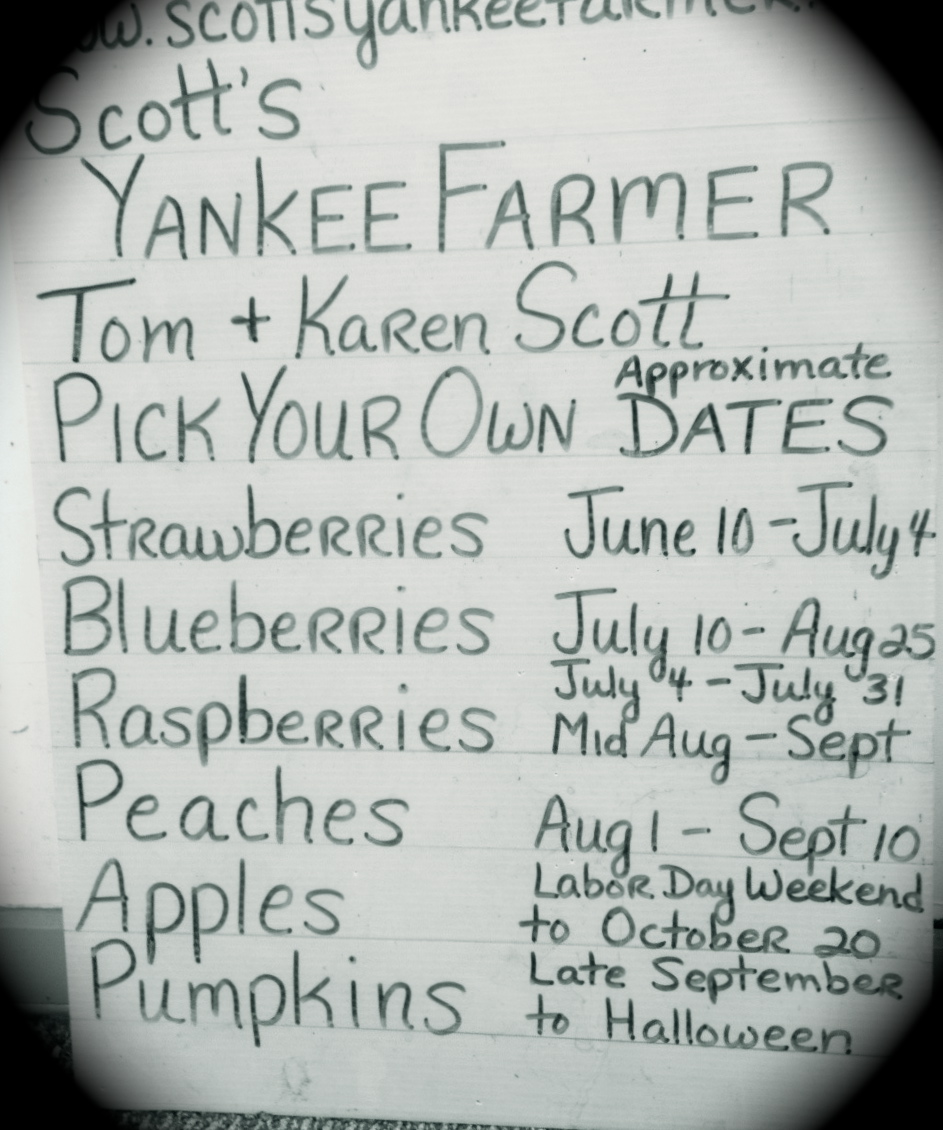 w.scottsyankeefarmer.
Scott's
YANKEE FARMER
Tom + Karen Scott
PICK YOUR OWN Approximate DATES
Strawberries June 10 - July 4
Blueberries July 10 - Aug 25
Raspberries July 4 - July 31
Mid Aug - Sept
Peaches Aug 1 - Sept 10
Apples Labor Day Weekend
to October 20
Pumpkins Late September
to Halloween